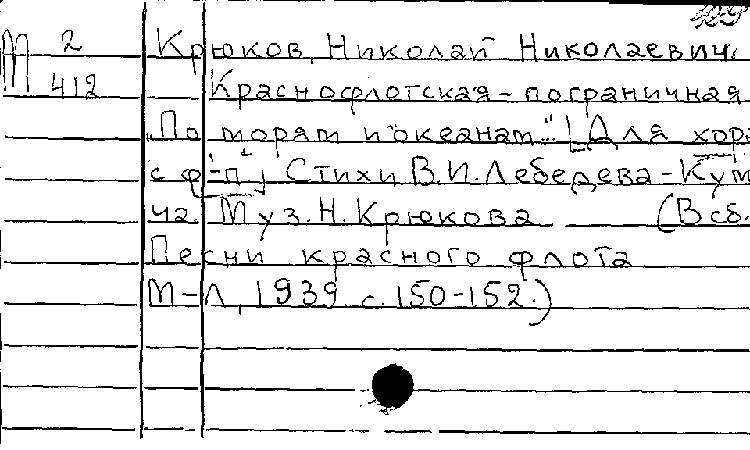 М 2 Крюков, Николай Николаевич.
412 Краснофлотская-пограничная
"По морям и океанам". [Для хора
с ф-п] Стихи В.И.Лебедева-Кум
ча Муз. Н. Крюкова (В сб.
Песни красного флота
М-Л, 1939 с. 150-152.)